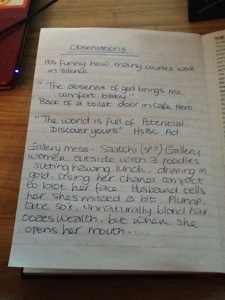 Observations
Its funny how many couples walk
in silence
"The absense of god brings me
comfort baby"
Back of a toilet door in Cafe Nero
"The world is full of Potential.
Discover yours" HSBC Ad
Gallery mess - Saatchi (sp?) Gallery
women outside with 3 poodles
sitting having lunch, dripping in
gold, using her chanel compact
to blot her face. Husband tells
her she's missed a bit. Plump,
late 50s, unnaturally blond hair
oozes wealth, but when she
opens her mouth...
THE